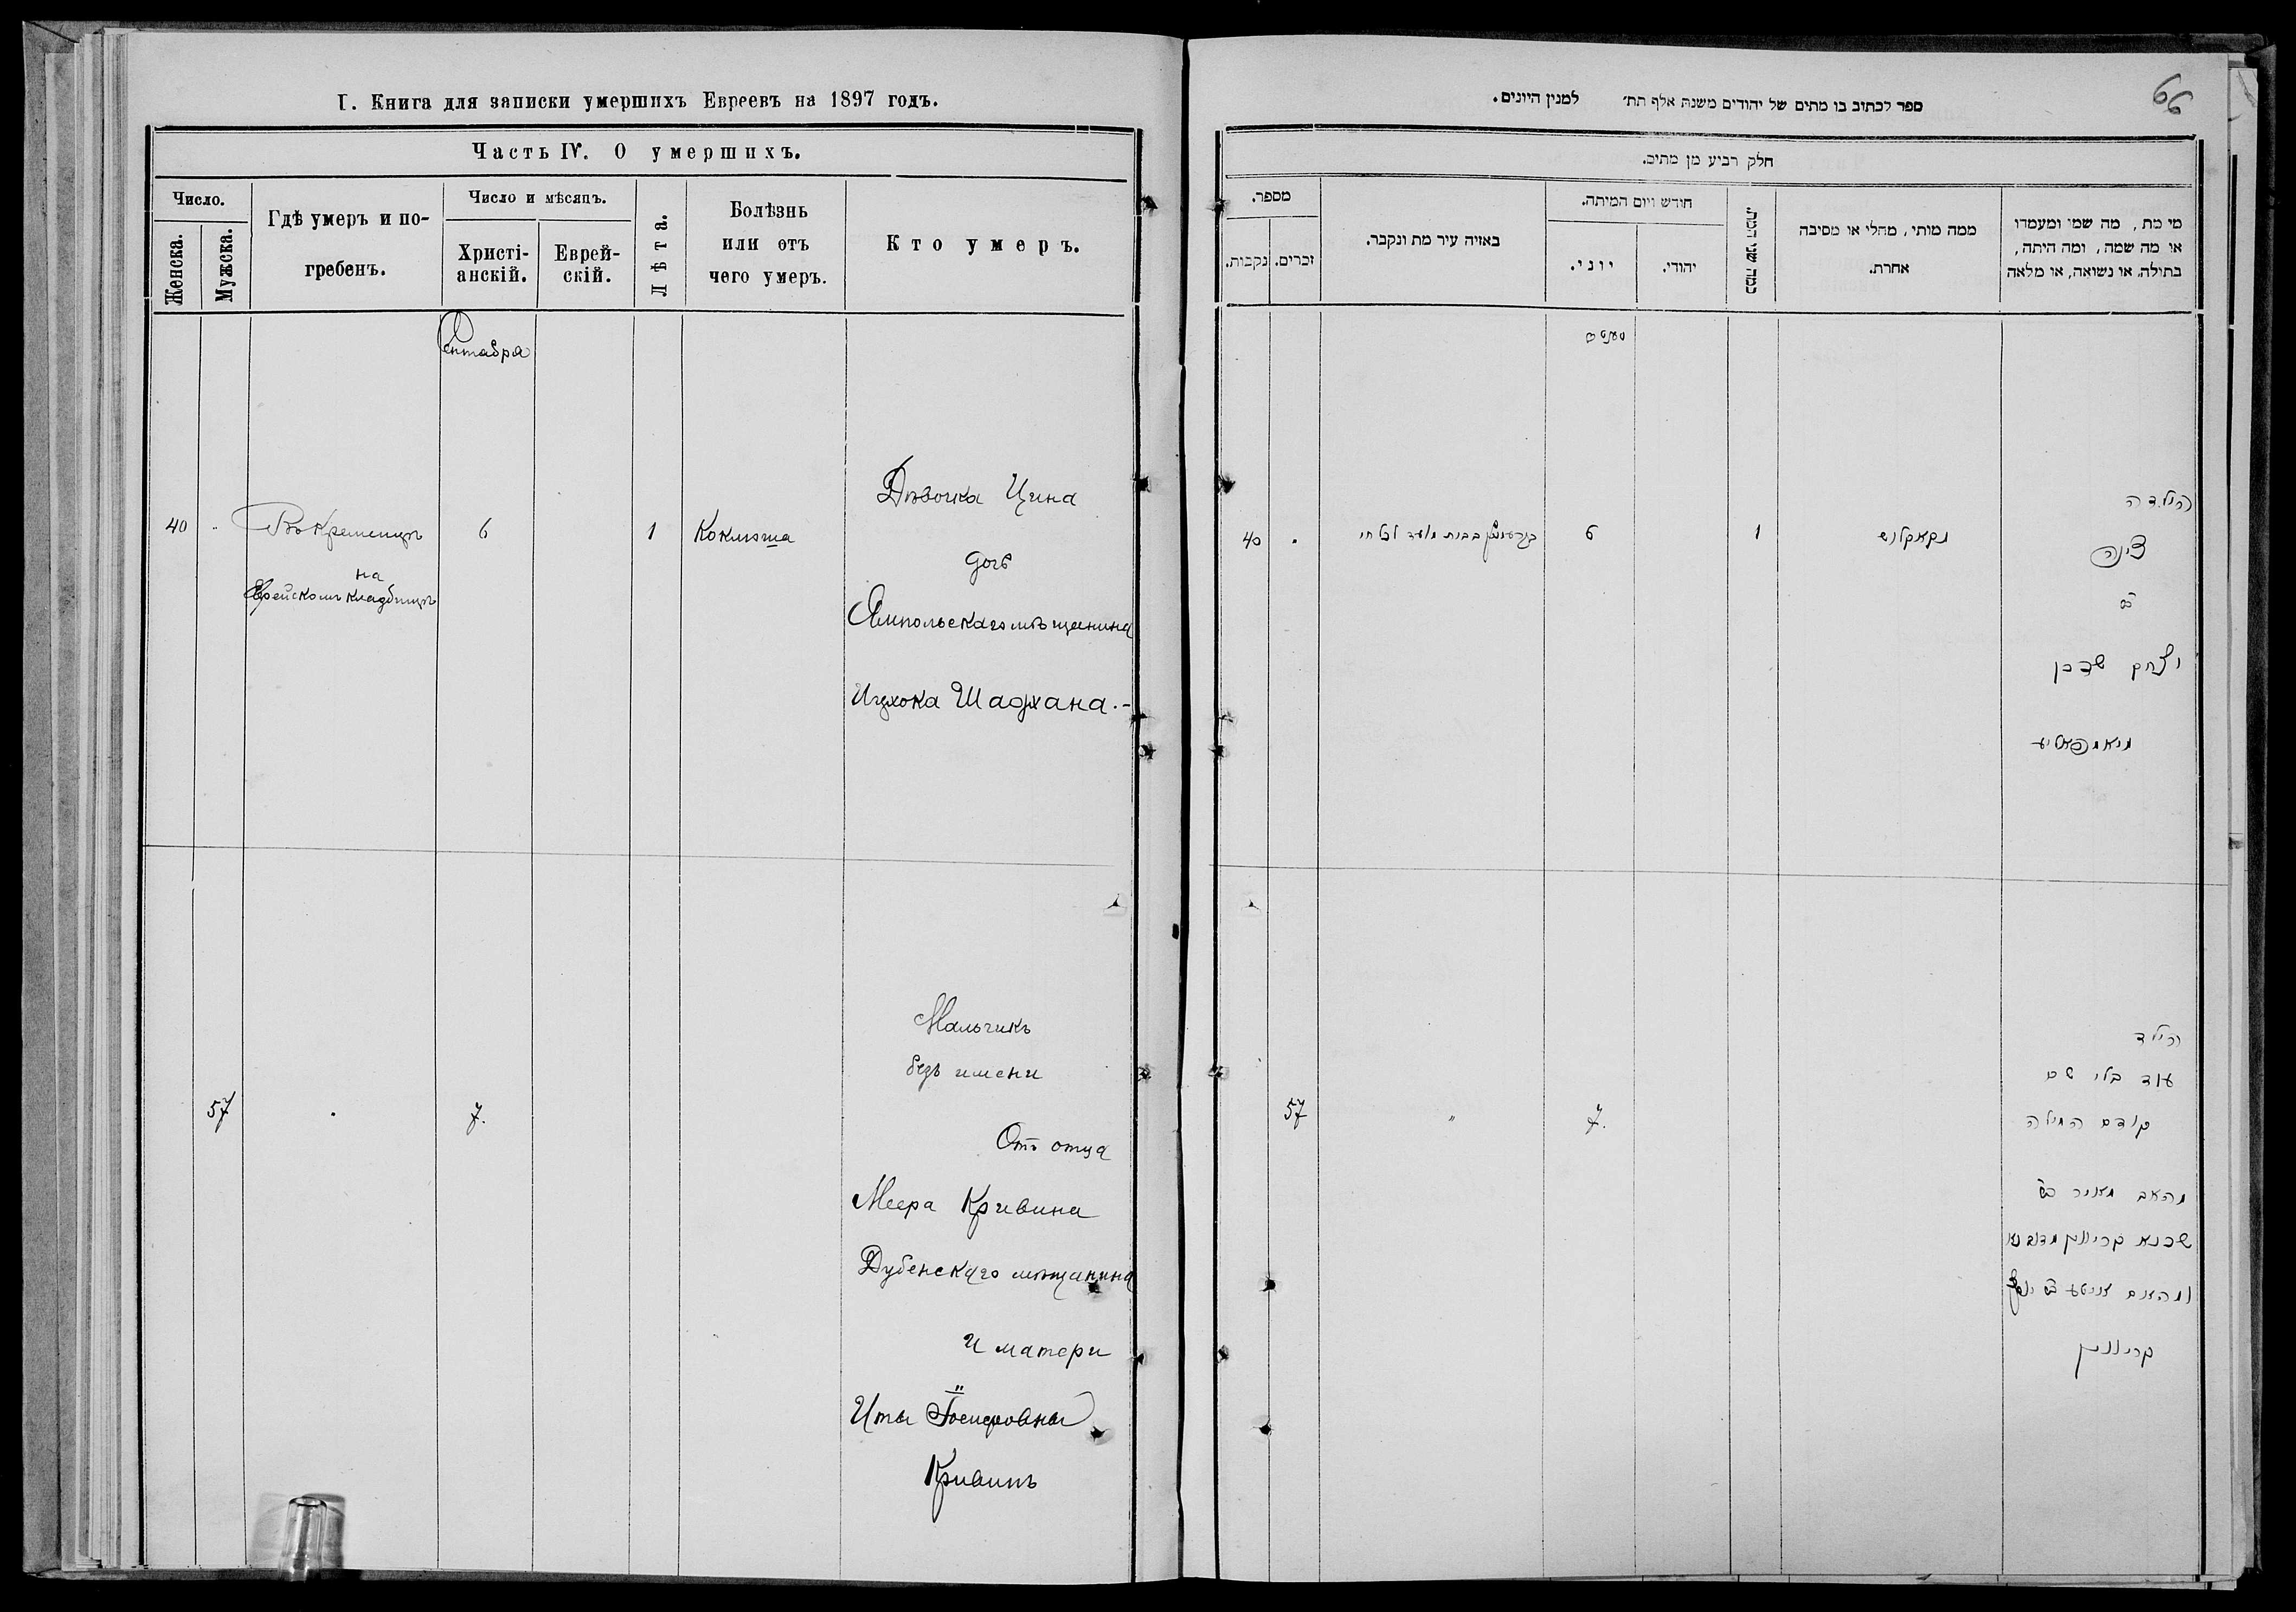 I. Книга для записки умершихъ Евреевъ на 1897 годъ.
Часть IV. О умершихъ.
Число.
Женска.
Мужска.
Гдѣ умеръ и по-
гребенъ.
Число и мѣсяцъ.
Христі-
анскій.
Еврей-
скій.
Лѣта.
Болѣзнь
или отъ
чего умеръ.
Кто умеръ.
Сентабря
40 " Въ Кременцѣ 6 1 Коклюша
на
Еврейскомъ кладбищѣ
Дѣвочка Цина
дочь
Ямпольскаго мѣщанина
Ицхока Шадхана.-
57 " 7.
Мальчикъ
безъ имени
Отъ отца
Меера Кривина
Дубенскаго мѣщанина
и матери
Иты Іосифовны
Кривинъ
66
ספר לכתוב בו מתים של יהודים משנת אלף תת׳ למנין היונים.
חלק רביע מן מתים.
מספר.
נקבות.
זכרים.
באיזה עיר מת ונקבר.
חודש ויום המיתה.
יוני.
יהודי.
כמה שני המת.
ממה מותי, מחלי או מסיבה
אחרת.
מי מת, מה שמו ומעמדו
או מה שמה, ומה היתה,
בתולה או נשואה, או מלאה
סעפט
40 " בבית מועד לכל חי 6 1 מקאקלוש
הילדה
צינה
בת
יצחק שדכן
מיאמפאליע
57 " 7.
הילד
עוד בלי שם
קודם המילה
מהאב מאיר
שכנא קריווין מדובנא
ומהאם איטע בת יוסף
קריווין